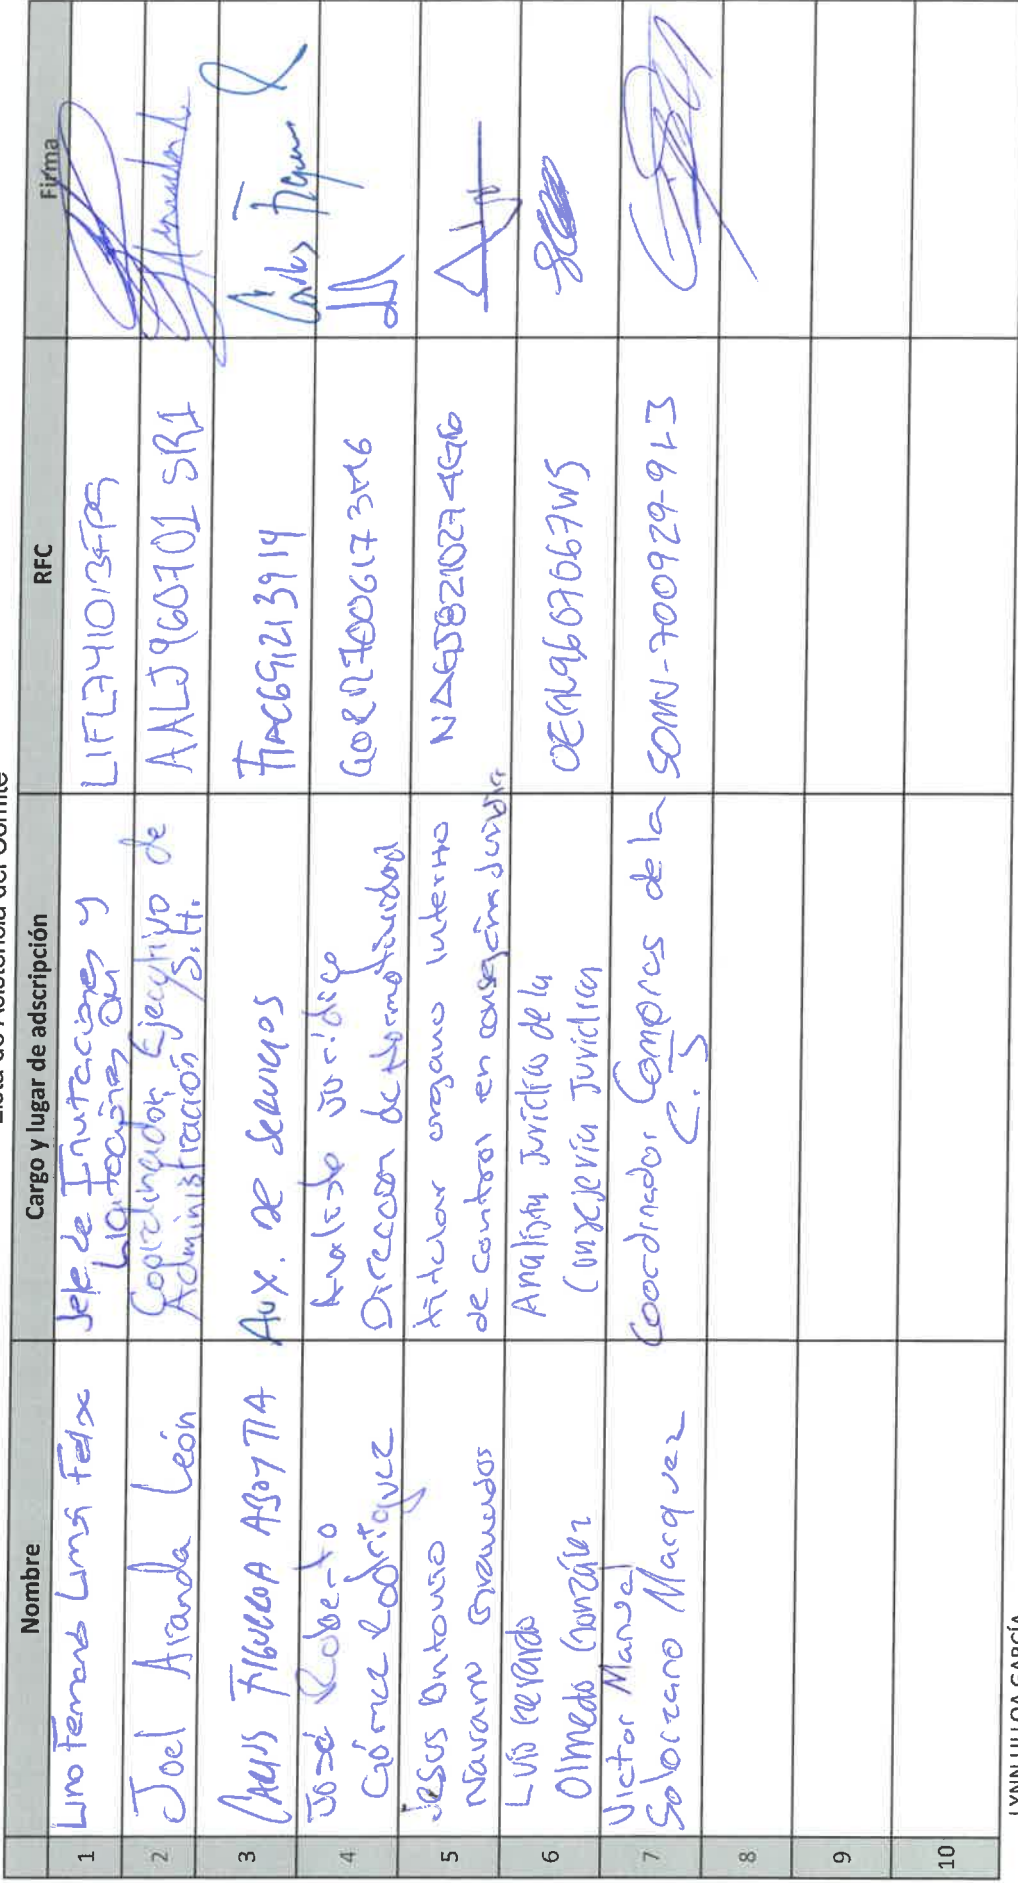 Lista de Asistencia del Comité
Nombre
Cargo y lugar de adscripción
RFC
Firma
1
Lino Fernando Lima Felix
Jefe de Invitaciones y
Licitaciones
LIFL741013FP5
2
Joel Aranda León
Coordinador Ejecutivo de
Administración /S.H.
AALJ960701 SR1
3
CARLOS FIGUEROA ABOYTIA
Aux. DE SERVICIOS
FIAC691213914
Carlos Figueroa
4
José Roberto
Gómez Rodríguez
Analista Jurídico
Dirección de Normatividad
GORR7006173M6
5
Jesus Antonio
Navarro Granados
titular organo interno
de control en consejería Jurídica
NAGJ8210274G6
6
Luis Gerardo
Olmedo González
Analista Jurídico de la
Consejería Jurídica
OEGL960766
7
Victor Manuel
Solorzano Marquez
Coordinador Compras de la
C.J
SOMV-700929-9L3
8
9
10
LYNN ULLOA GARCÍA